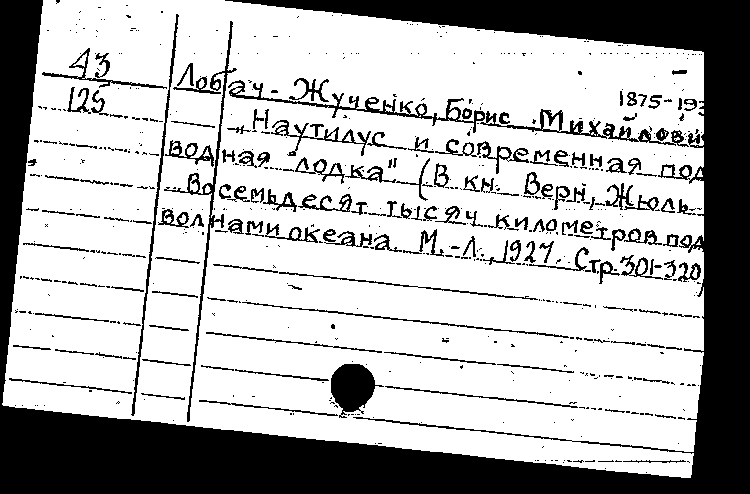 43
125
1875-193
Лобач-Жученко, Борис Михайлови
„Наутилус и современная под
водная лодка" (В кн. Верн, Жюль
Восемьдесят тысяч километров под
волнами океана. М.-Л., 1927. Стр. 301-320)